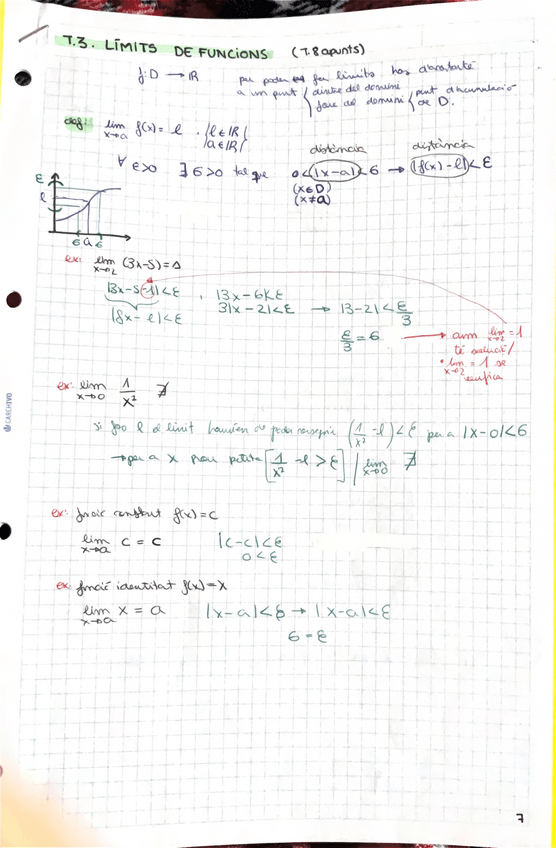 T.3. LÍMITS DE FUNCIONS (T.8 apunts)
f: D → ℝ
per poder fer límits hos d'acostarte
a un punt { dintre del domini / fora del domini { punt d'acumulació de D.
def: lim x→a f(x) = l . |l∈ℝ| |a∈ℝ|
distància distància
∀ ε>0 ∃ δ>0 tal que 0<|x-a|<δ → |f(x)-l|<ε
(x∈D)
(x≠a)
ε
l
δ a δ
ex: lim x→2 (3x-5)=1
|3x-5-1|<ε , |3x-6|<ε
|fx-l|<ε 3|x-2|<ε → |3-2|<ε/3
ε/3 = δ
→ amb lim x→2 = 1
té solució/
• lim x→2 = 1 se
verifica
ex: lim x→0 1/x² ∄
si fos l el límit hauríem de poder conseguir (1/x² - l)<ε per a |x-0|<δ
→ per a x prou petita [1/x² - l > ε] / lim x→0 ∄
ex: funció constant f(x)=c
lim x→a c = c |c-c|<ε
0<ε
ex: funció identitat f(x)=x
lim x→a x = a |x-a|<δ → |x-a|<ε
δ=ε
CARCHIVO
7